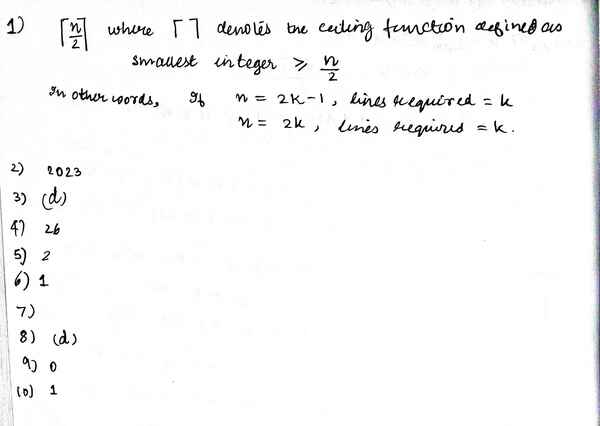 1) ⌈n/2⌉ where ⌈ ⌉ denotes the ceiling function defined as
smallest integer ⩾ n/2
In other words, If n = 2k-1, lines required = k
n = 2k, lines required = k.
2) 2023
3) (d)
4) 26
5) 2
6) 1
7)
8) (d)
9) 0
10) 1